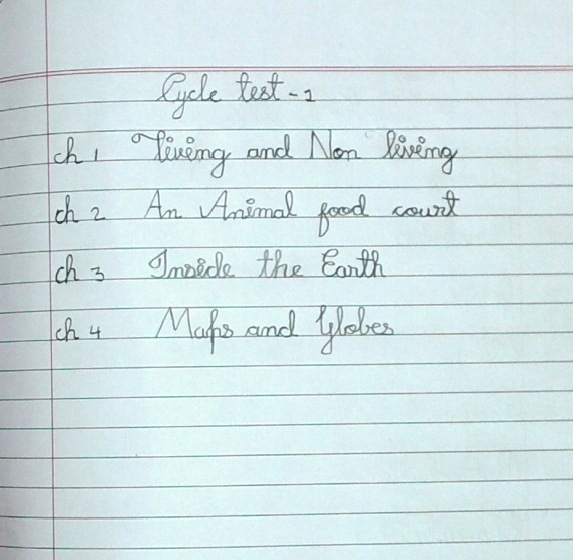 Cycle test - 1
ch 1 Living and Non living
ch 2 An Animal food court
ch 3 Inside the Earth
ch 4 Maps and Globes